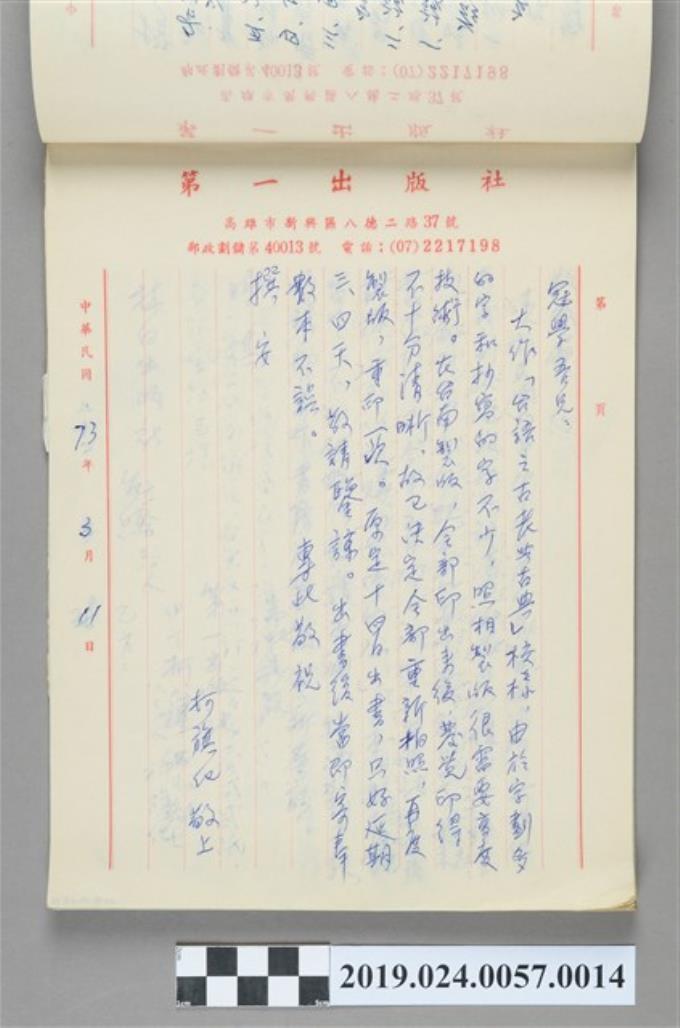 第一出版社
高雄市新興區八德二路37號
郵政劃儲第40013號 電話：(07)2217198
第 頁
冠學吾兄、
大作「台語之古老與古典」校樣，由於字劃多
的字和抄寫的字不少，照相製版很需要高度
技術。在台南製版，全部印出來後，發覺印得
不十分清晰，故已決定全部重新拍照，再度
製版，重印一次。原定十四日出書，只好延期
三、四天，敬請鑒諒。出書後當即寄奉
數本不誤。 專此敬祝
撰安
柯旗化敬上
中華民國73年3月11日
2019.024.0057.0014